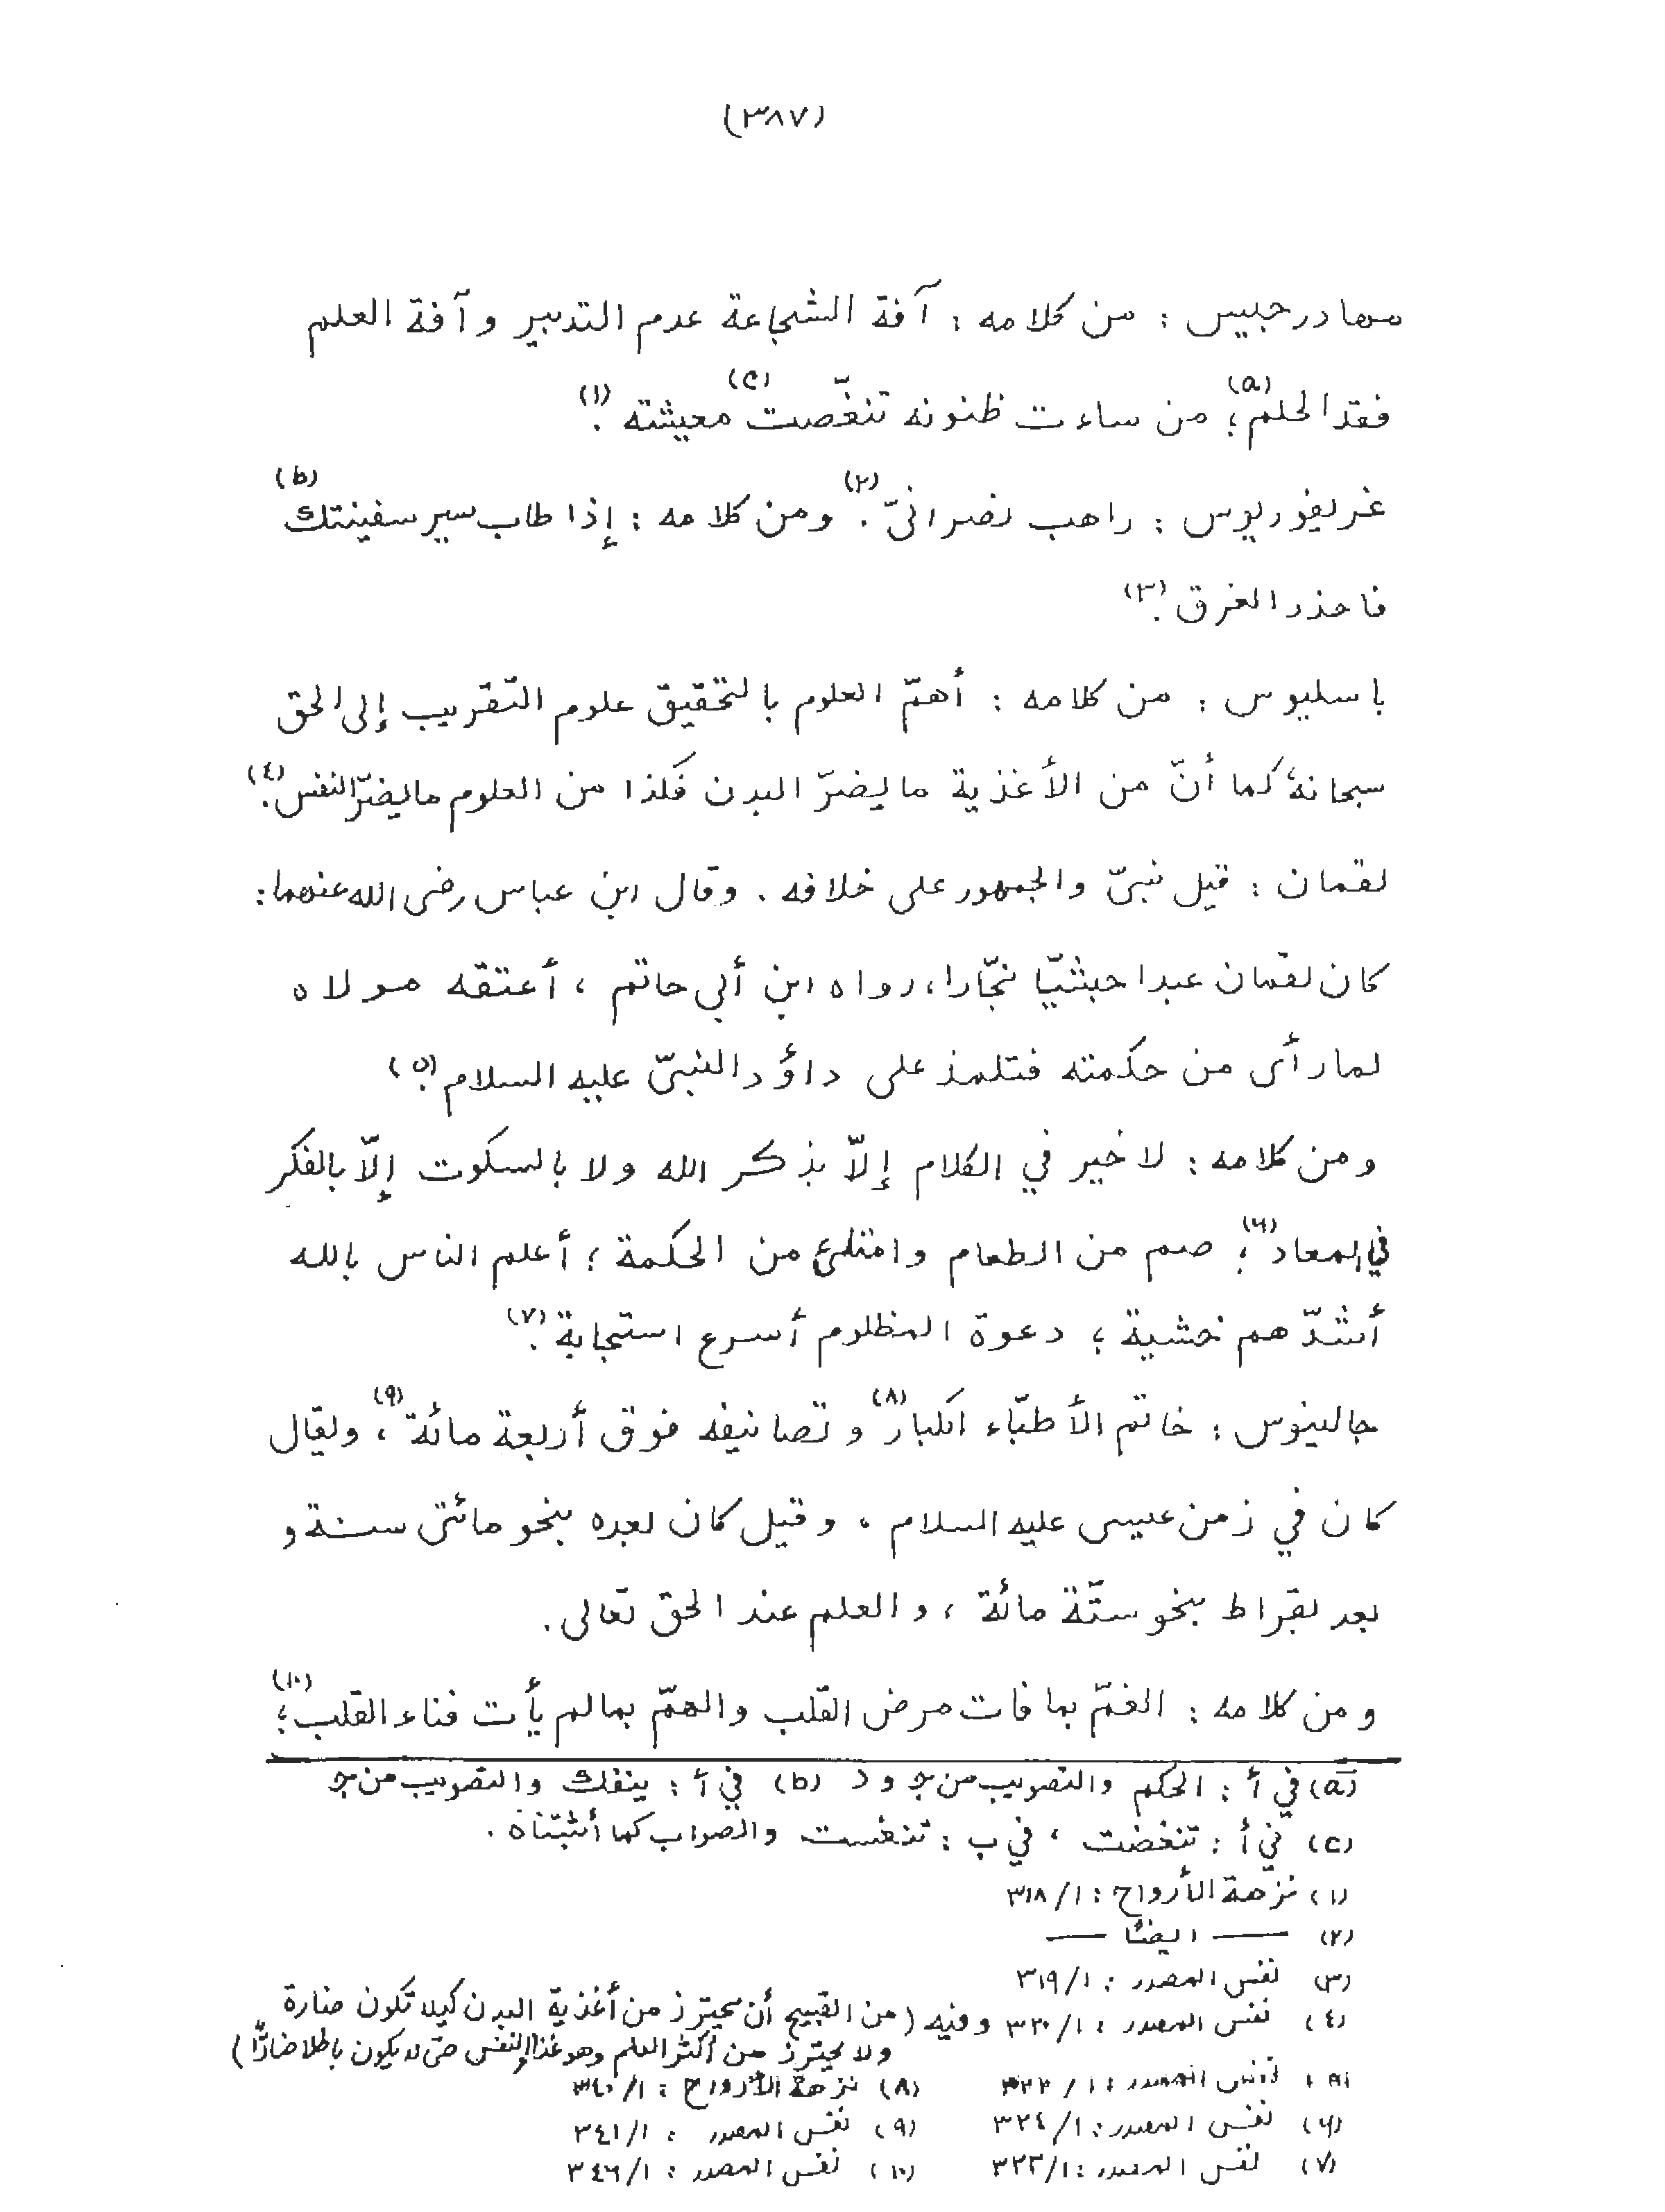 (٣٨٧)
مهادرجيس : من كلامه : آفة الشجاعة عدم التدبير وآفة العلم
فقد الحلم(a) ؛ من ساءت ظنونه تنغّصت(c) معيشته(١) .
غريغوريوس : راهب نصرانيّ(٢) . ومن كلامه : إذا طاب سير سفينتك(b)
فاحذر الغرق(٣) .
باسليوس : من كلامه : أهمّ العلوم بالتحقيق علوم التقريب إلى الحق
سبحانه، كما أنّ من الأغذية ما يضرّ البدن فكذا من العلوم ما يضرّ النفس(٤) .
لقمان : قيل نبيّ والجمهور على خلافه . وقال ابن عباس رضى الله عنهما :
كان لقمان عبدا حبشيّا نجّارا، رواه ابن أبي حاتم ، أعتقه مولاه
لما رأى من حكمته فتلمذ على داؤد النبيّ عليه السلام(٥) .
ومن كلامه : لا خير في الكلام إلاّ بذكر الله ولا بالسكوت إلاّ بالفكر
في المعاد(٦) ؛ صم من الطعام وامتلئ من الحكمة ؛ أعلم الناس بالله
أشدّهم خشية ؛ دعوة المظلوم أسرع استجابة(٧) .
جالينوس : خاتم الأطبّاء الكبار(٨) وتصانيفه فوق أربعة مائة(٩) ، ويقال
كان في زمن عيسى عليه السلام ، وقيل كان بعده بنحو مائتى سنة و
بعد بقراط بنحو ستّة مائة ، والعلم عند الحق تعالى .
ومن كلامه : الغمّ بما فات مرض القلب والهمّ بمالم يأت فناء القلب(١٠) ؛
(a) في أ : الحكم والتصويب من ج و د (b) في أ : ينفك والتصويب من ج
(c) في أ : تنغضت ، في ب : تنغست والصواب كما أثبتناه .
(١) نزهة الأرواح : ١/ ٣١٨
(٢) — ايضًا —
(٣) نفس المصدر : ١/ ٣١٩
(٤) نفس المصدر : ١/ ٣٢٠ وفيه (من القبيح أن يحترز من أغذية البدن كيلا تكون ضارة
ولا يحترز من أكثر العلم وهو غذا النفس حتى لا يكون باطلا ضارًّا)
(٥) نفس المصدر : ١/ ٣٢٢ (٨) نزهة الأرواح : ١/ ٣٤٠
(٦) نفس المصدر : ١/ ٣٢٤ (٩) نفس المصدر : ١/ ٣٤١
(٧) نفس المصدر : ١/ ٣٢٣ (١٠) نفس المصدر : ١/ ٣٤٦